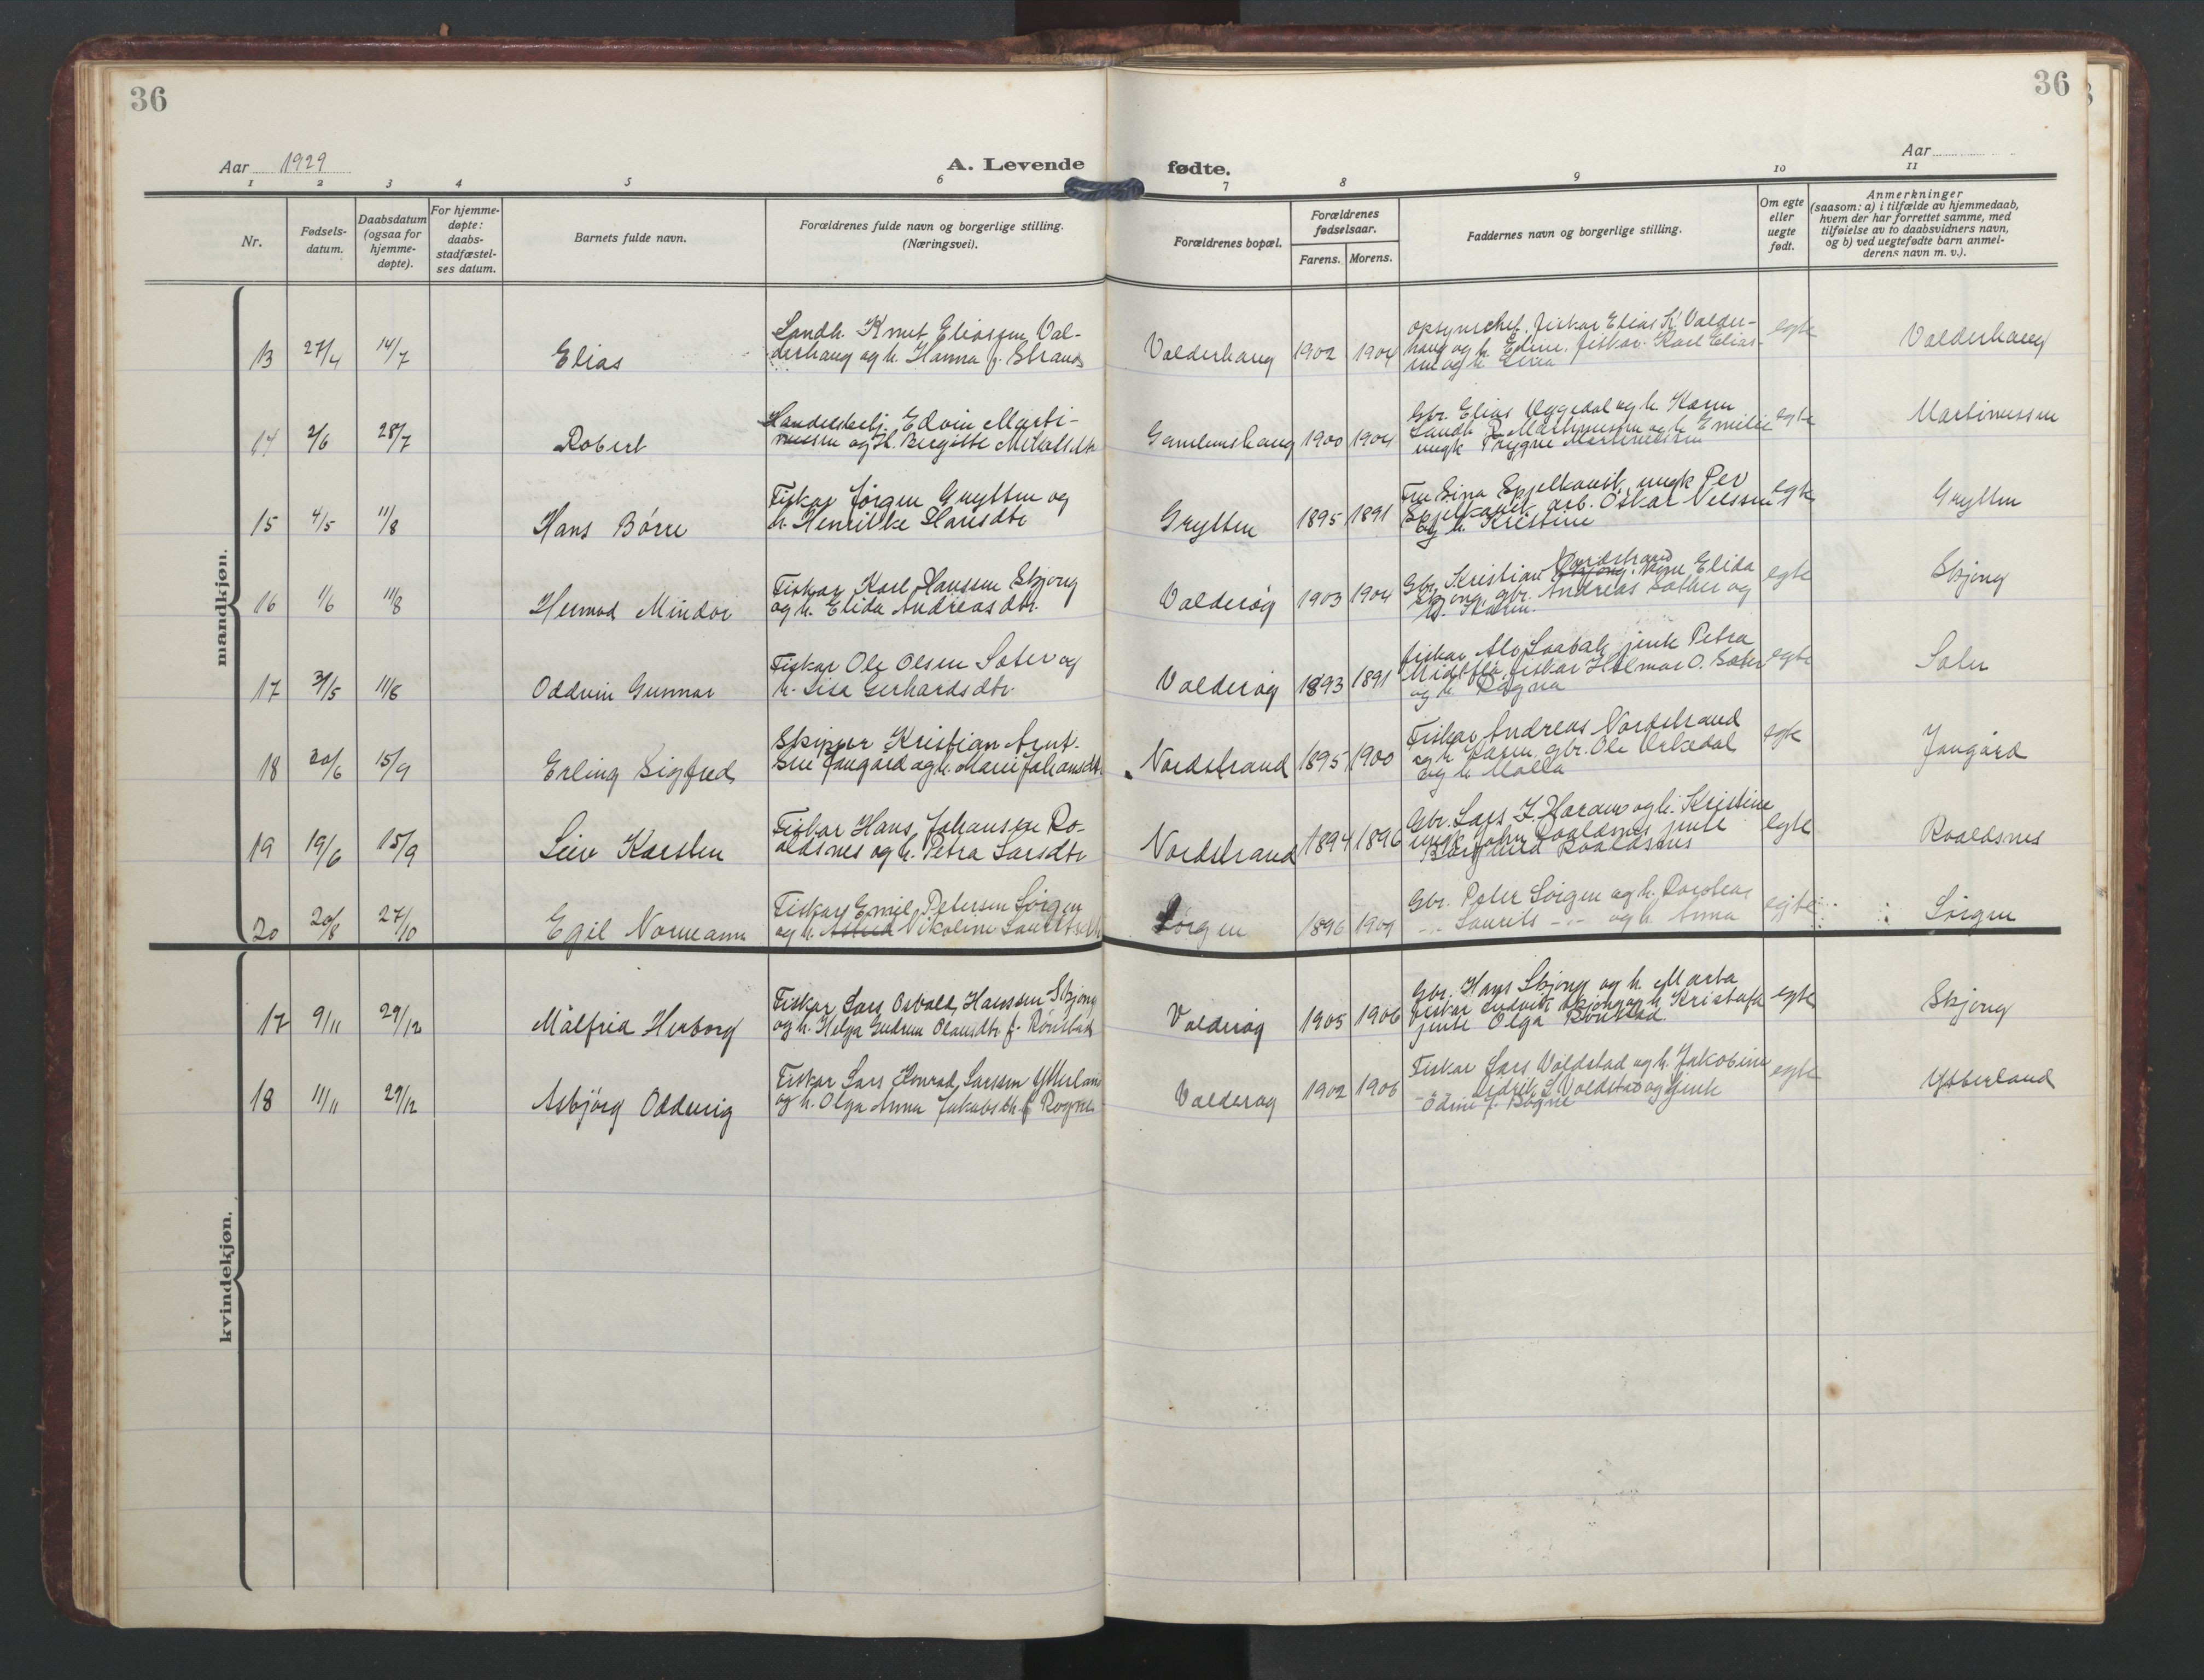 36
36
Aar 1929
A. Levende fødte.
Aar
1 2 3 4 5 6 7 8 9 10 11
Nr.
Fødsels-
datum.
Daabsdatum
(ogsaa for
hjemme-
døpte).
For hjemme-
døpte:
daabs-
stadfæstel-
ses datum.
Barnets fulde navn.
Forældrenes fulde navn og borgerlige stilling.
(Næringsvei).
Forældrenes bopæl.
Forældrenes
fødselsaar.
Farens. Morens.
Faddernes navn og borgerlige stilling.
Om egte
eller
uegte
født.
Anmerkninger
(saasom: a) i tilfælde av hjemmedaab,
hvem der har forrettet samme, med
tilføielse av to daabsvidners navn,
og b) ved uegtefødte barn anmel-
derens navn m. v.).
mandkjøn.
13 27/4 14/7 Elias
Landh. Knut Eliassen Val-
derhaug og h. Hanna f. Strand
Valderhaug 1902 1904
opsynschef, fiskar Elias K. Valder-
haug og h. Edine, fiskar Karl Elias-
sen og h.
egte Valderhaug
14 2/6 28/7 Robert
Handelsbetj. Edvin Marti-
nussen og H. Birgitte
Gamlemshaug 1900 1904
Gbr. Elias og h. Karen
Landh. R. Martinussen og h. Emilie
ungk. Trygve Martinussen
egte Martinussen
15 4/5 11/8 Hans Børre
Fiskar Jørgen Grytten og
h. Henrikke Hansdtr
Grytten 1895 1891
Fru Sina Spjelkavik, ungk. Per
Spjelkavik, arb. Oskar Nilssen
og h. Kristine
egte Grytten
16 1/6 11/8 Hermod Mindor
Fiskar Karl Hanssen Skjong
og h. Elida Andreasdtr.
Valderøy 1903 1904
Gbr. Kristian Nordstrand, Elida
Skjong, gbr. Andreas Sæther og
h. Karen.
egte Skjong
17 31/5 11/8 Oddvin Gunnar
Fiskar Ole Olsen Sæter og
h. Lisa Gerhardsdtr.
Valderøy 1893 1891
fiskar jente Petra
fiskar Hilmar O. Sæter
og h. Ragna
egte Sæter
18 20/6 15/9 Erling Sigfred
Skipper Kristian Arnt-
sen Jangård og h. Marie Johansdtr
Nordstrand 1895 1900
Fiskar Andreas Nordstrand
og h. Karen, gbr. Ole Urkedal
og h. Malla
egte Jangård
19 19/6 15/9 Leiv Karsten
Fiskar Hans Johansen Ro-
aldsnes og h. Petra Larsdtr
Nordstrand 1894 1896
Gbr. Lars I. Haram og h. Kristine
ungk. John Roaldsnes, jente
Borghild Roaldsnes
egte Roaldsnes
20 20/8 27/10 Egil Normann
Fiskar Emil Petersen Sørgen
og h. Astrid Nikoline
Sørgen 1896 1901
Gbr. Peter Sørgen og h. Dorothea
-"- Laurits -"- og h. Anna
egte Sørgen
kvindekjøn.
17 9/11 29/12 Målfrid Herborg
Fiskar Lars Osvald Hanssen Skjong
og h. Helga Gudrun Olausdtr. f. Rønstad
Valderøy 1905 1906
Gbr. Hans Skjong og h. Marta
fiskar Ludvik Skjong og h.
jente Olga Rønstad
egte Skjong
18 11/11 29/12 Asbjørg Oddveig
Fiskar Lars Konrad Larssen Ytterland
og h. Olga Anna Jakobsdtr. f. Rogne
Valderøy 1902 1906
Fiskar Lars Valdstad og h. Jakobine
-"- L. Valdstad og jente
Edine f. Rogne
egte Ytterland